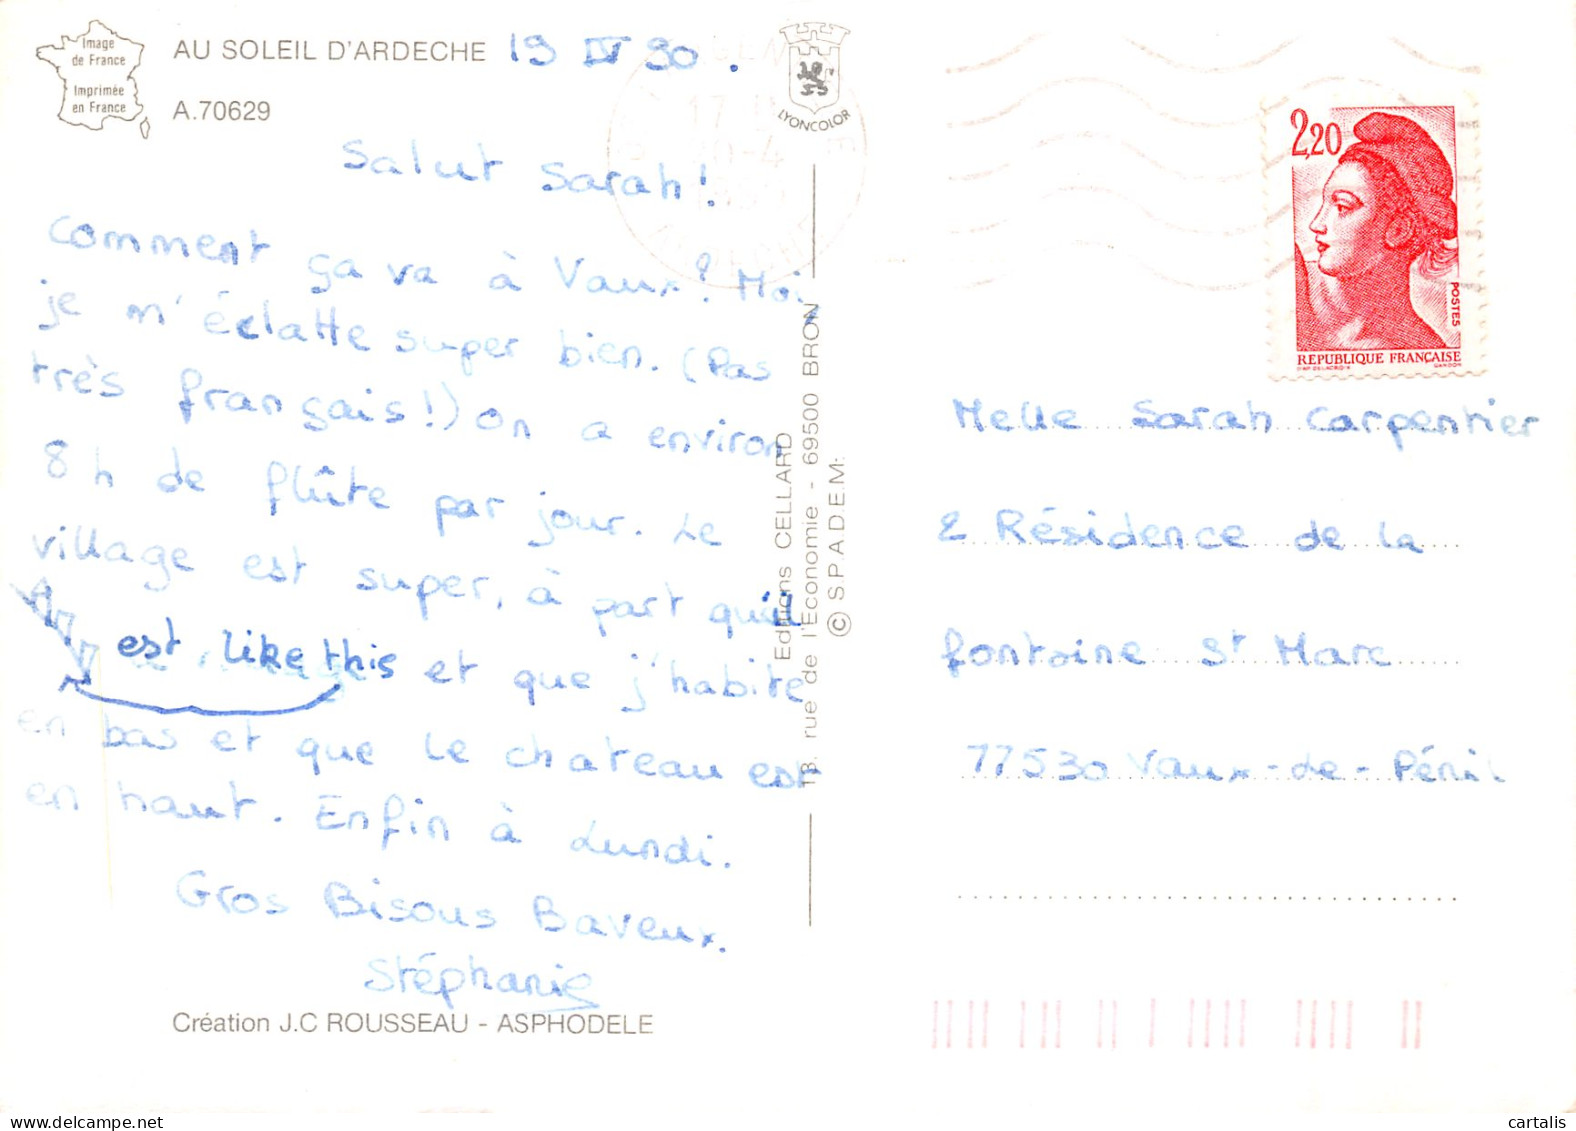 Image
de France
Imprimée
en France
AU SOLEIL D'ARDECHE
A.70629
19 IV 90.
LYONCOLOR
Salut Sarah!
Comment ça va à Vaux? Moi,
je m'éclatte super bien. (Pas
très français!) On a environ
8 h de flûte par jour. Le
village est super, à part qu'il
est like this et que j'habite
en bas et que le chateau est
en haut. Enfin à Lundi.
Gros Bisous Baveux.
Stéphanie
Création J.C ROUSSEAU - ASPHODELE
Editions CELLARD
13, rue de l'Economie - 69500 BRON
© S.P.A.D.E.M.
2,20
POSTES
REPUBLIQUE FRANÇAISE
D'AP. DELACROIX GANDON
Melle Sarah Carpentier
2 Résidence de la
fontaine St Marc
77530 Vaux-de-Pénil
cartalis